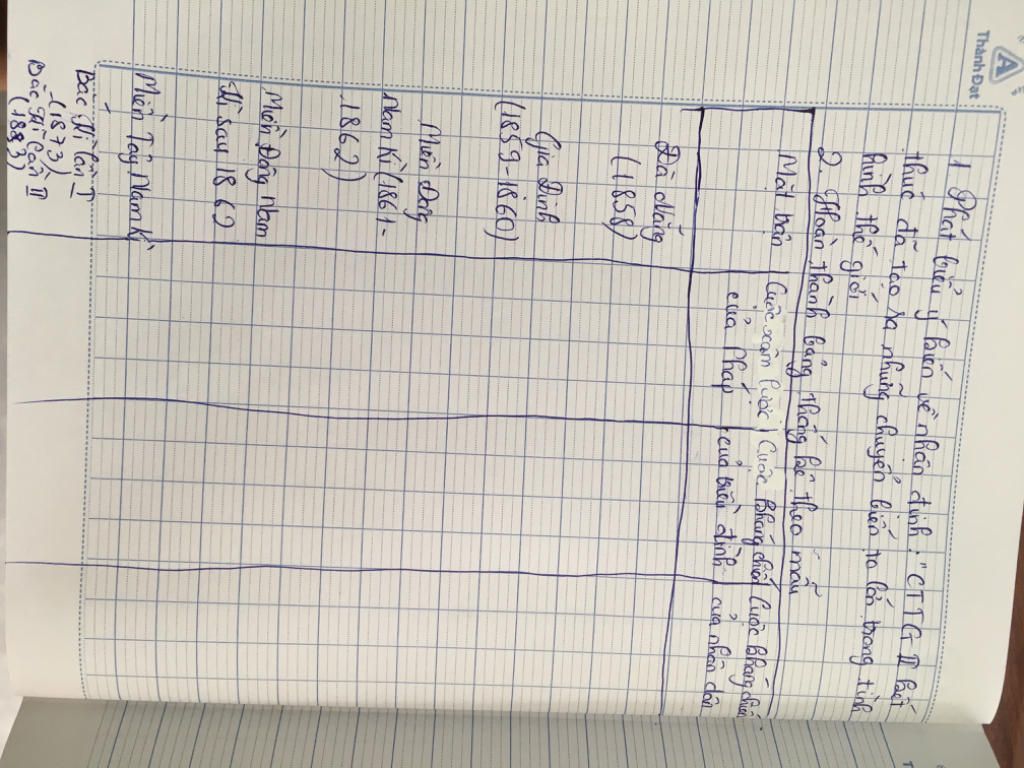 Thành Đạt
1. Phát biểu ý kiến về nhận định: "CTTG II kết
thúc đã tạo ra những chuyển biến to lớn trong tình
hình thế giới
2. Hoàn thành bảng thống kê theo mẫu
Mặt trận | Cuộc xâm lược | Cuộc kháng chiến | Cuộc kháng chiến
của Pháp | của triều đình | của nhân dân
Đà Nẵng
(1858)
Gia Định
(1859-1860)
Miền Đông
Nam Kì (1861-
1862)
Miền Đông Nam
Kì sau 1862
Miền Tây Nam Kì
Bắc Kì lần I
(1873)
Bắc Kì lần II
(1883)